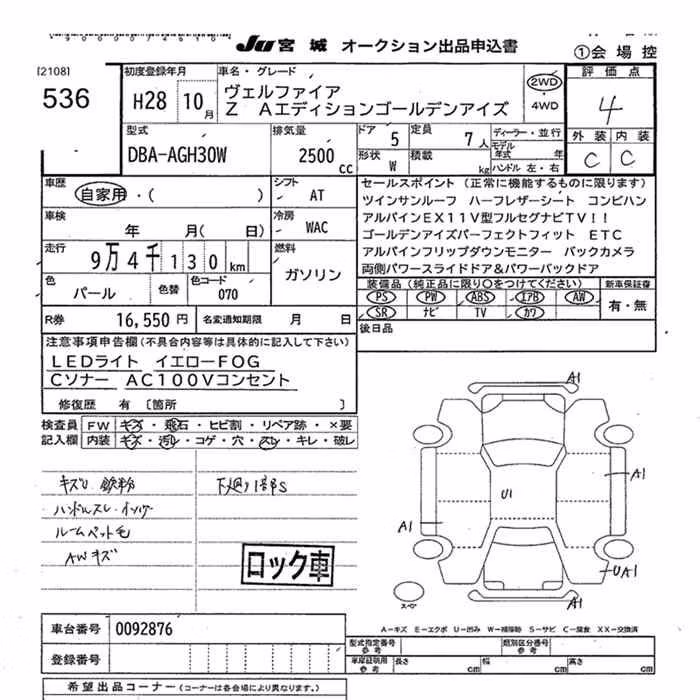 JU 宮城 オークション出品申込書
①会場控
[2108]
536
初度登録年月
H28 10月
車名・グレード
ヴェルファイア
Z Aエディションゴールデンアイズ
2WD
・
4WD
評価点
4
外装 内装
C C
型式
DBA-AGH30W
排気量
2500cc
ドア 5
定員 7人
形状 W
積載 kg
ディーラー・並行
モデル年式 年
ハンドル 左・右
車歴
自家用・( )
シフト
AT
車検
年 月( 日)
冷房
WAC
走行
9万4千130km
燃料
ガソリン
色
パール
色替
色コード
070
R券 16,550円
名変通知期限 月 日
セールスポイント (正常に機能するものに限ります)
ツインサンルーフ ハーフレザーシート コンビハン
アルパインEX11V型フルセグナビTV!!
ゴールデンアイズパーフェクトフィット ETC
アルパインフリップダウンモニター バックカメラ
両側パワースライドドア&パワーバックドア
装備品(純正品に限り○をつけてください)
新車保証書
PS PW ABS エアB AW
SR ナビ TV カワ
有・無
後日品
注意事項申告欄(不具合内容等は具体的に記入して下さい)
LEDライト イエローFOG
Cソナー AC100Vコンセント
修復歴 有 〔箇所 〕
検査員記入欄
FW キズ・飛石・ヒビ割・リペア跡・×要
内装 キズ・汚レ・コゲ・穴・スレ・キレ・破レ
キズU 鉄粉
下廻り1部S
ハンドルスレ・
ルームペット毛
AWキズ
ロック車
A1
A1
U1
A1
UA1
A1
スペア
A-キズ E-エクボ U-凹み W-補修跡 S-サビ C-腐食 XX-交換済
車台番号 0092876
登録番号
型式指定番号 参考
類別区分番号 参考
車庫証明用 参考
長さ cm
幅 cm
高さ cm
希望出品コーナー(コーナーは各会場により異なります。)